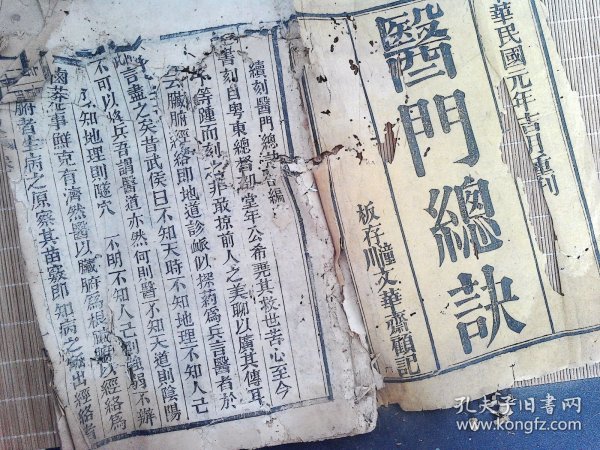 華民國元年吉月重刊
醫門總訣
板存川潼文華齋顧記
續刻醫門總訣告編
書刻自粤東總督
堂年公希堯其救世苦心至今
不等踵而刻之非敢掠前人之美聊以廣其傳耳
云臟腑經絡即地道診脈似探葯爲兵言醫者於
此言盡之矣昔武侯曰不知天時不知地理不知人
不可以將兵吾謂醫道亦然何則醫不知天道則陰陽
不知地理則隧穴
不明不知人
則強弱不辨
鹵莽從事鮮克有濟然醫以臟腑爲根
以經絡爲
腑者生病之原察其苗竅即知病之
出經絡者
孔夫子旧书网
www.kongfz.com